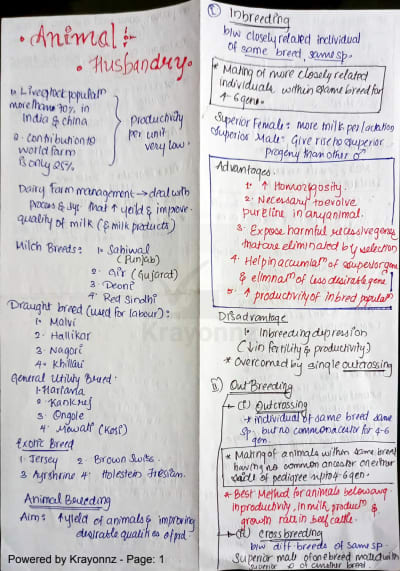 • Animal :-
• Husbandry •
1. Livestock populatn
more than 70% in
India & china
2. Contribution to
world farm
is only 25%
productivity
per unit
very low.
Dairy Farm management → deal with
process & sys. that ↑ yeild & improve
quality of milk (& milk products)
Milch Breeds: 1. Sahiwal
(Punjab)
2. Gir (Gujarat)
3. Deoni
4. Red Sindhi
Draught breed (used for labour):
1. Malvi
2. Hallikar
3. Nagori
4. Khillari
General Utility Breed.
1. Hariana
2. Kankrej
3. Ongole
4. Mewati (Kosi)
Exotic Breed
1. Jersey 2. Brown Swiss.
3. Ayrshrine 4. Holestein Fresian.
Animal Breeding
Aim: ↑ yield of animals & improving
desirable qualities of pd.
I) Inbreeding
b/w closely related individual
of same breed, same sp.
* Mating of more closely related
individuals within same breed for
4-6 gen.
Superior Female: more milk per lactation
Superior Male: Give rise to superior
progeny than other
Advantages.
1. ↑ Homozygosity.
2. Necessary to evolve
pureline in any animal.
3. Expose harmful recessive genes
that are eliminated by selection
4. Help in accumlatn of superior gene
& elimnatn of less desirable gene
5. ↑ productivity of inbred populatn
Disadvantage
1. Inbreeding depression
(↓ in fertility & productivity)
* Overcomed by single outcrossing
II) OutBreeding
(i) Outcrossing
* individual of same breed same
sp. but no common ancestor for 4-6
gen.
* Mating of animals within same breed
having no common ancestor on either
side of pedigree upto 4-6 gen.
* BEST Method for animals below avg.
in productivity, in milk productn &
growth rate in beef cattle.
(ii) crossbreeding
b/w diff breeds of same sp.
Superior male of one breed mated with
superior ♀ of another breed.
Krayonnz
Powered by Krayonnz - Page: 1